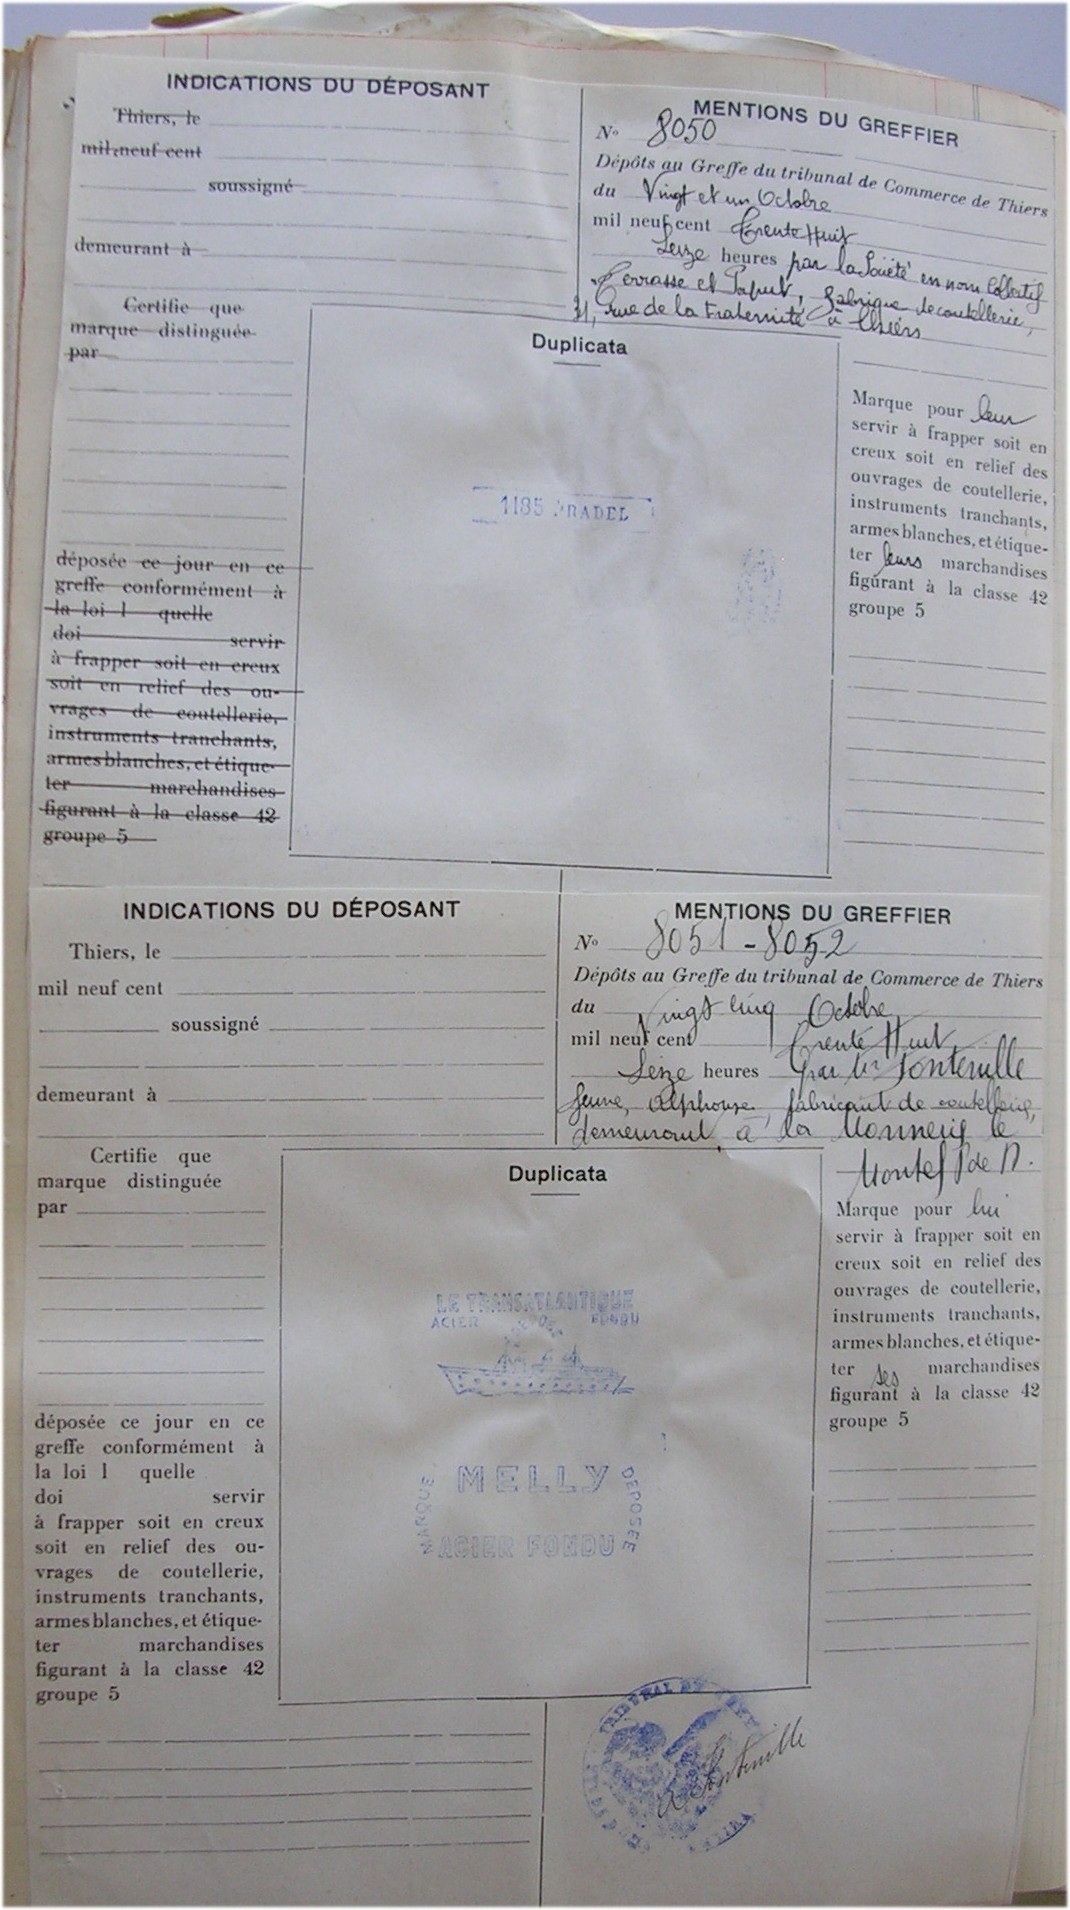 INDICATIONS DU DÉPOSANT
Thiers, le
mil neuf cent
soussigné
demeurant à
Certifie que
marque distinguée
par
déposée ce jour en ce
greffe conformément à
la loi l quelle
doi servir
à frapper soit en creux
soit en relief des ou-
vrages de coutellerie,
instruments tranchants,
armes blanches, et étique-
ter marchandises
figurant à la classe 42
groupe 5
MENTIONS DU GREFFIER
N° 8050
Dépôts au Greffe du tribunal de Commerce de Thiers
du Vingt et un Octobre
mil neuf cent Trente Huit
Seize heures par la Société en nom Collectif
Terrasse et Paput, fabrique de coutellerie,
rue de la Fraternité à Thiers
Duplicata
1185 PRADEL
Marque pour leur
servir à frapper soit en
creux soit en relief des
ouvrages de coutellerie,
instruments tranchants,
armes blanches, et étique-
ter leurs marchandises
figurant à la classe 42
groupe 5
INDICATIONS DU DÉPOSANT
Thiers, le
mil neuf cent
soussigné
demeurant à
Certifie que
marque distinguée
par
déposée ce jour en ce
greffe conformément à
la loi l quelle
doi servir
à frapper soit en creux
soit en relief des ou-
vrages de coutellerie,
instruments tranchants,
armes blanches, et étique-
ter marchandises
figurant à la classe 42
groupe 5
MENTIONS DU GREFFIER
N° 8051 - 8052
Dépôts au Greffe du tribunal de Commerce de Thiers
du Vingt Cinq Octobre
mil neuf cent Trente Huit
Seize heures par Mr Fontenille
Jeune, Alphonse, fabricant de coutellerie,
demeurant à La Monnerie le
Montel P de D.
Duplicata
LE TRANSATLANTIQUE
ACIER FONDU
MELLY
MARQUE DEPOSEE
ACIER FONDU
Marque pour lui
servir à frapper soit en
creux soit en relief des
ouvrages de coutellerie,
instruments tranchants,
armes blanches, et étique-
ter ses marchandises
figurant à la classe 42
groupe 5
TRIBUNAL DE
Fontenille